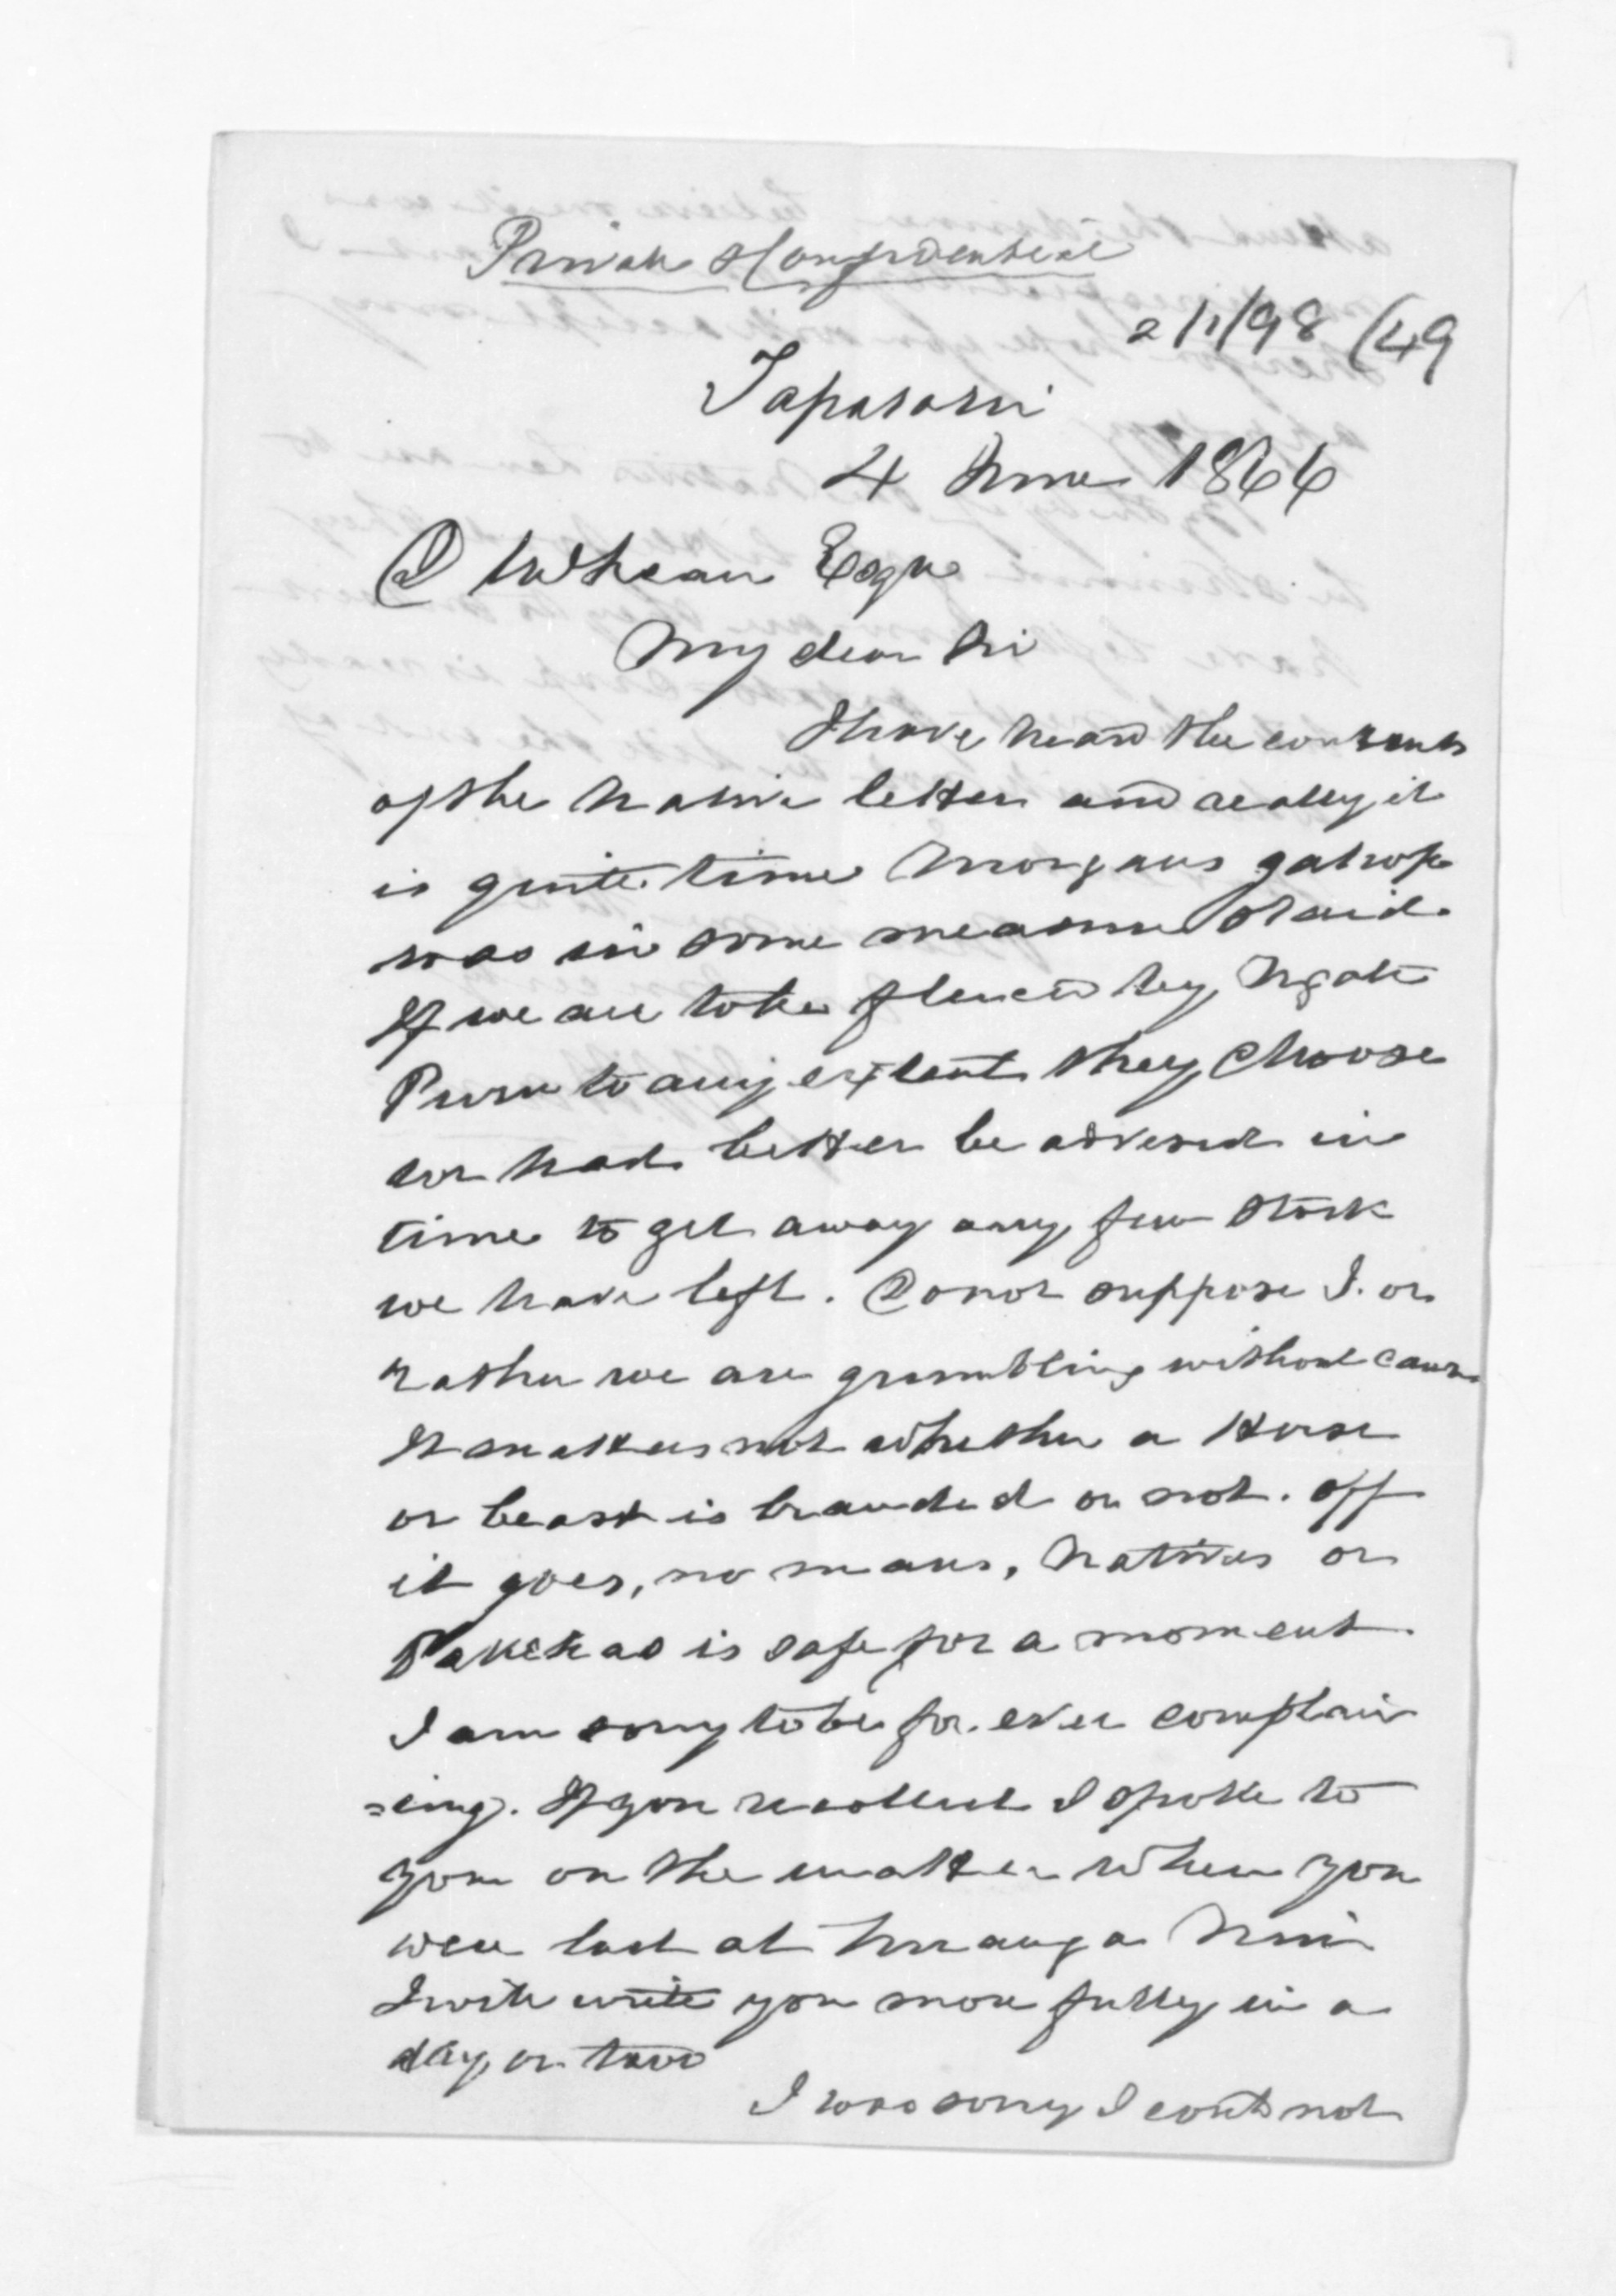 Private & Confidential
2/1/98 (49
Tapararu
4 June 1866
D McLean Esqre
My dear Sir
I have heard the contents
of the Native letter and really it
is quite time Morgans gallop
was in some measure staid.
If we are to be fleeced by Ngati
Puru to any extent they choose
we had better be advised in
time to get away any few stock
we have left. Do not suppose I. or
rather we are grumbling without cause
It matters not whether a Horse
or beast is branded or not. off
it goes, no mans, Natives or
Pakehas is safe for a moment.
I am sorry to be for ever complain
=ing. If you recollect I spoke to
you on the matter when you
were last at Tauranga Nui
I will write you more fully in a
day or two
I was sorry I could not